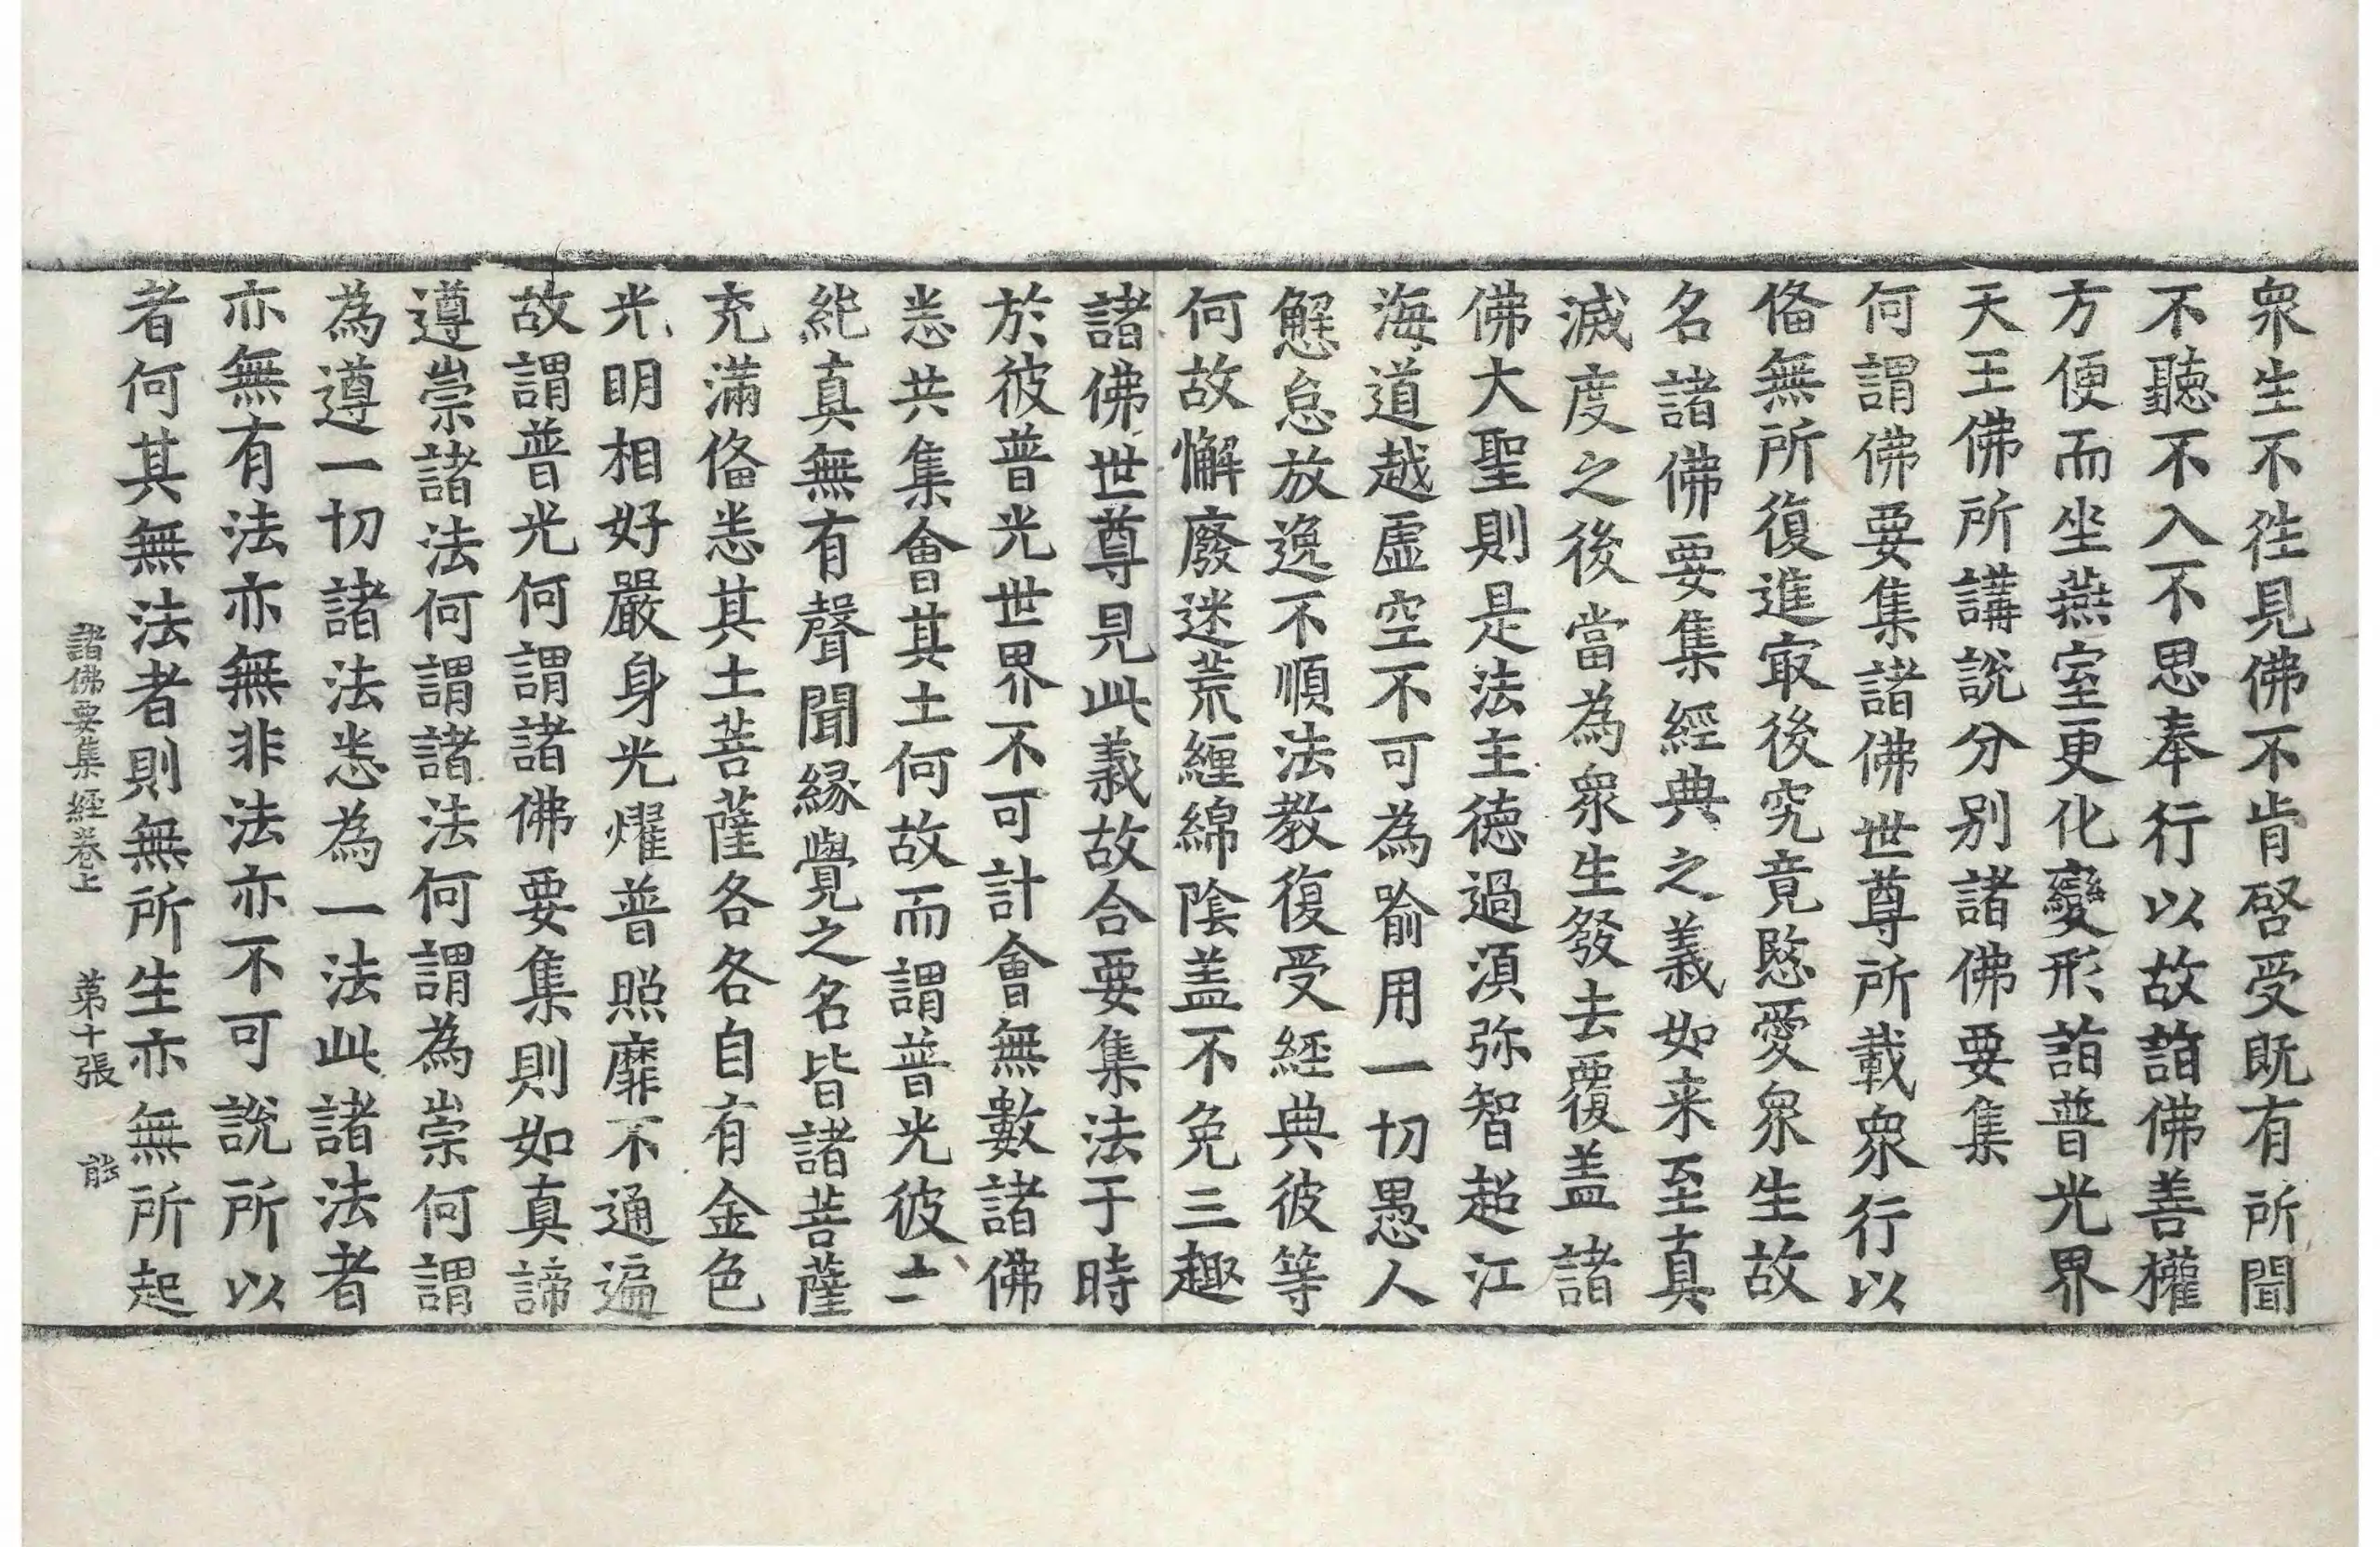 衆生不徃見佛不肯啓受既有所聞
不聽不入不思奉行以故詣佛善權
方便而坐燕室更化變形詣普光界
天王佛所講說分别諸佛要集
何謂佛要集諸佛世尊所載衆行以
俻無所復進㝡後究竟愍愛衆生故
名諸佛要集經典之義如来至真
滅度之後當為衆生發去覆盖諸
佛大聖則是法主德過湏弥智超江
海道越虛空不可為喻用一切愚人
懈怠放逸不順法教復受經典彼等
何故懈廢迷荒纏綿陰盖不免三趣
諸佛世尊見此義故合要集法于時
於彼普光世界不可計會無數諸佛
悉共集會其土何故而謂普光彼土
純真無有聲聞緣覺之名皆諸菩薩
充滿俻悉其土菩薩各各自有金色
光明相好嚴身光燿普照靡不通遍
故謂普光何謂諸佛要集則如真諦
遵崇諸法何謂諸法何謂為崇何謂
為遵一切諸法悉為一法此諸法者
亦無有法亦無非法亦不可說所以
者何其無法者則無所生亦無所起
諸佛要集經卷上 第十張